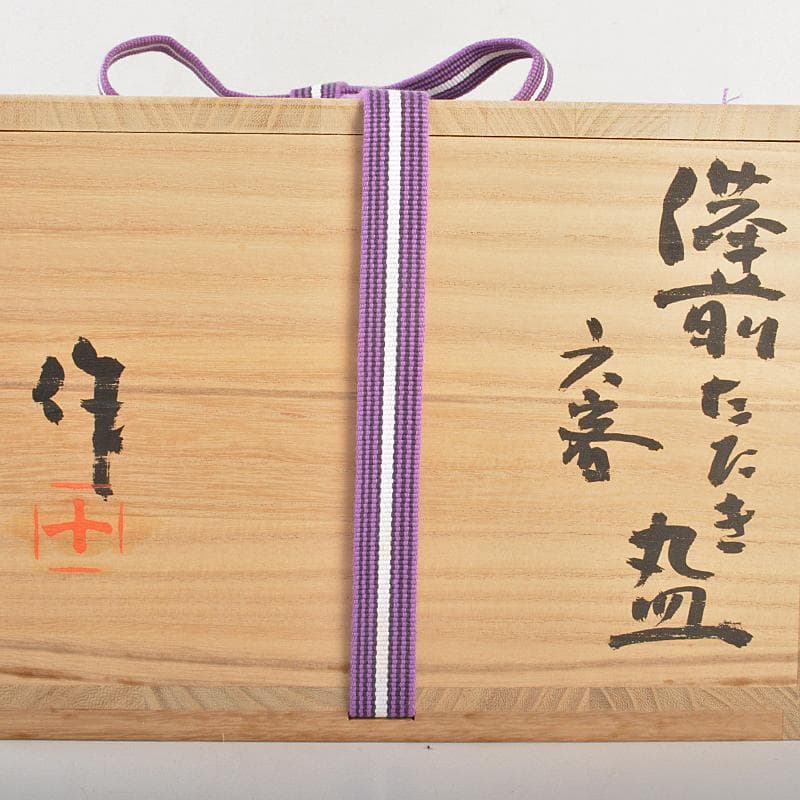 備前たたき
丸皿
六客
作
十